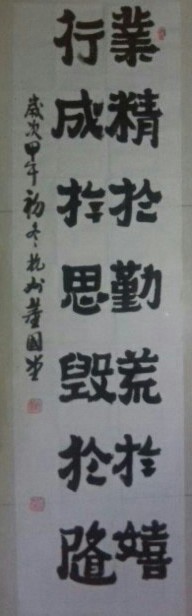 業精於勤荒於嬉
行成於思毀於隨
歲次甲午初冬